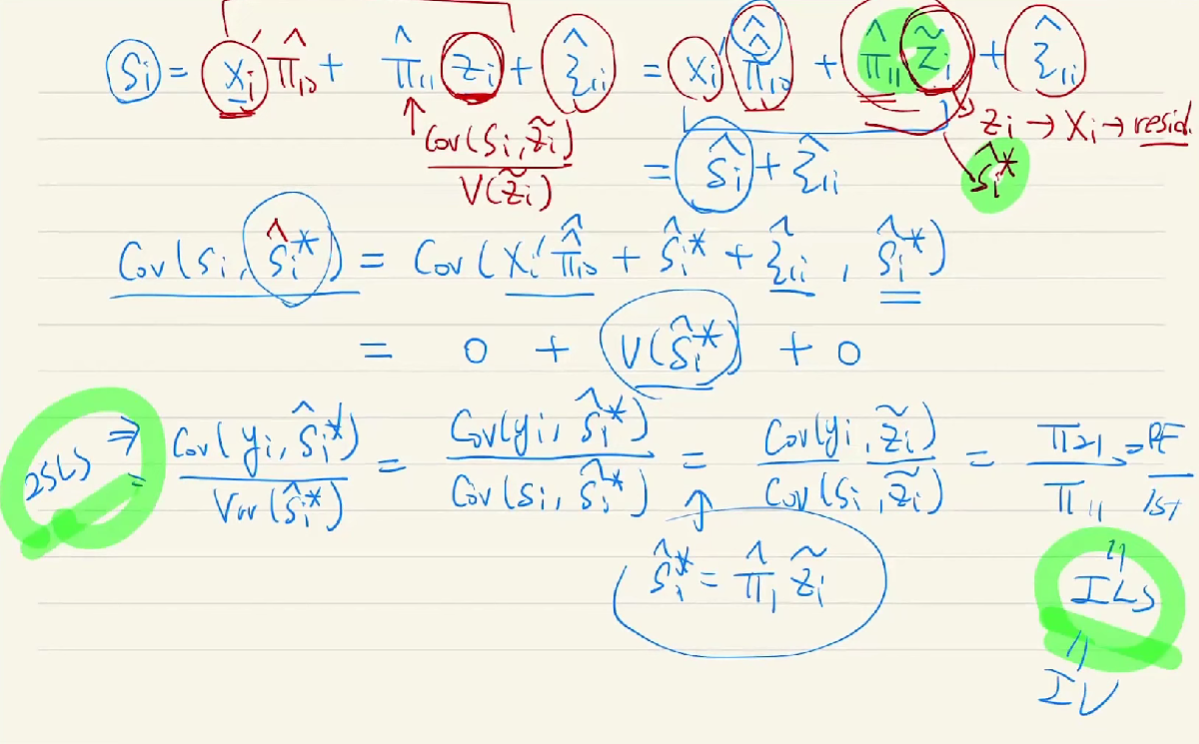 Sᵢ = Xᵢ′ π̂₁₀ + π̂₁₁ Zᵢ + ξ̂₁ᵢ = Xᵢ′ π̂̂₁₀ + π̂₁₁ Z̃ᵢ + ξ̂₁ᵢ
↑ Cov(Sᵢ, Z̃ᵢ) / V(Z̃ᵢ)
Zᵢ → Xᵢ → resid.
= Ŝᵢ + ξ̂₁ᵢ
Ŝᵢ*
Cov(Sᵢ, Ŝᵢ*) = Cov(Xᵢ′ π̂̂₁₀ + Ŝᵢ* + ξ̂₁ᵢ, Ŝᵢ*)
= 0 + V(Ŝᵢ*) + 0
2SLS ⇒ = Cov(yᵢ, Ŝᵢ*) / Var(Ŝᵢ*) = Cov(yᵢ, Ŝᵢ*) / Cov(Sᵢ, Ŝᵢ*) = Cov(yᵢ, Z̃ᵢ) / Cov(Sᵢ, Z̃ᵢ) = π₂₁ / π₁₁ = RF / 1st
↑
Ŝᵢ* = π̂₁ Z̃ᵢ
"
ILS
"
IV